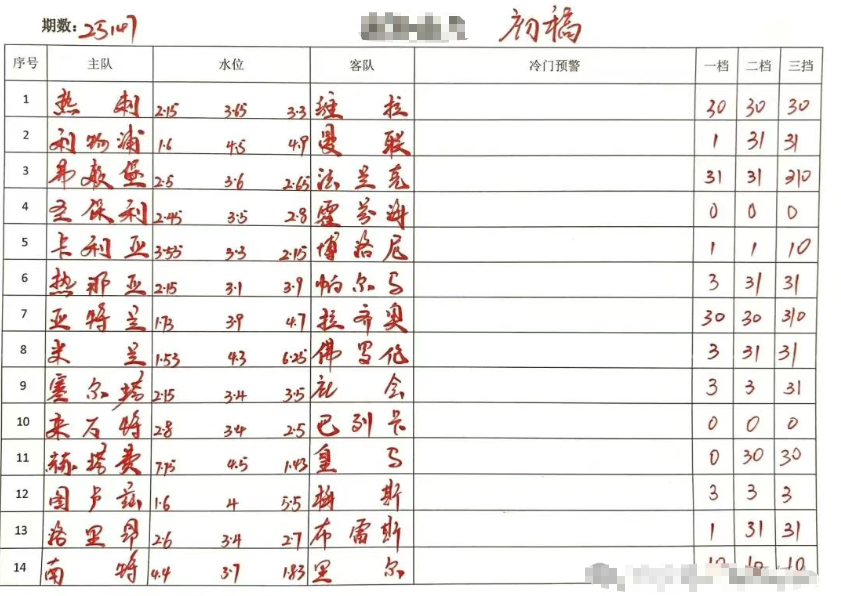 期数: 25147 初稿
序号 主队 水位 客队 冷门预警 一档 二档 三挡
1 热刺 2.15 3.65 3.3 维拉 30 30 30
2 利物浦 1.6 4.5 4.9 曼联 1 31 31
3 弗赖堡 2.5 3.6 2.65 法兰克 31 31 310
4 圣保利 2.45 3.5 2.8 霍芬海 0 0 0
5 卡利亚 3.55 3.3 2.15 博洛尼 1 1 10
6 热那亚 2.15 3.1 3.9 帕尔马 3 31 31
7 亚特兰 1.73 3.9 4.7 拉齐奥 30 30 310
8 米兰 1.53 4.3 6.25 佛罗伦 3 31 31
9 塞尔塔 2.15 3.4 3.5 社会 3 3 31
10 莱万特 2.8 3.4 2.5 巴列卡 0 0 0
11 赫塔费 7.15 4.5 1.43 皇马 0 30 30
12 图卢兹 1.6 4 5.5 梅斯 3 3 3
13 洛里昂 2.6 3.4 2.7 布雷斯 1 31 31
14 南特 4.4 3.7 1.83 里尔 10 10 10